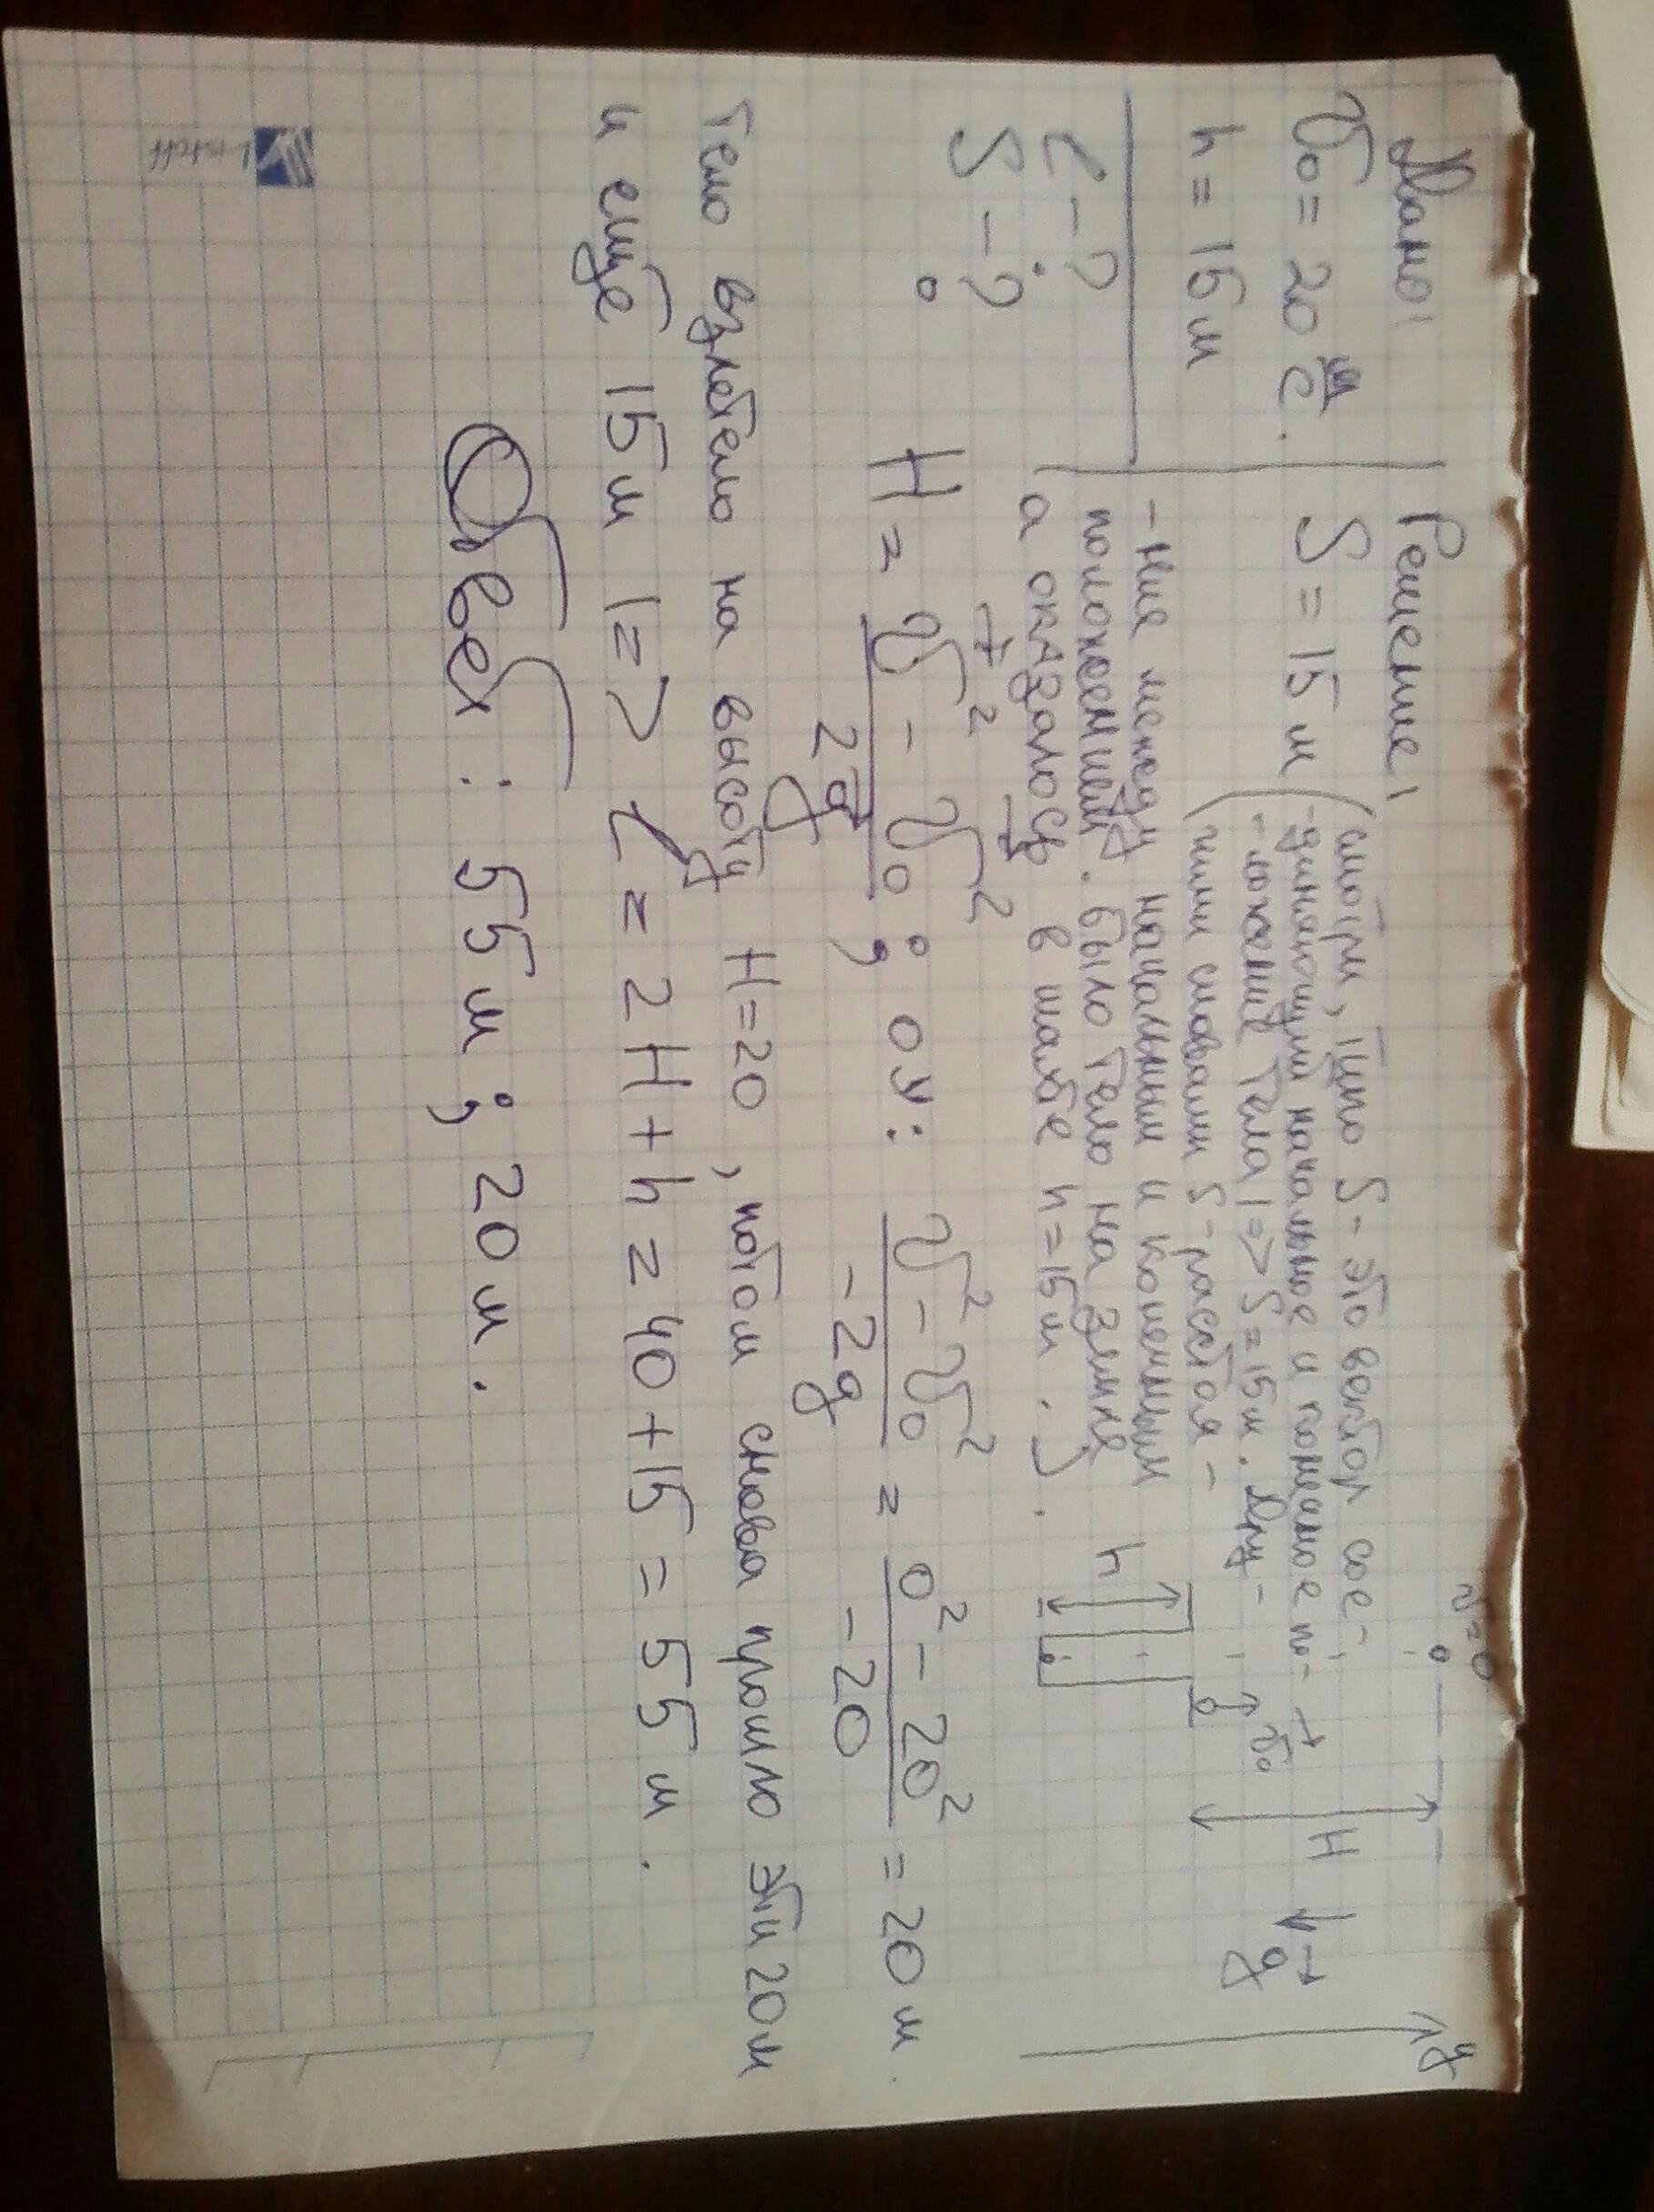 Дано:
V₀ = 20 м/с.
h = 15 м
L - ?
S - ?
Решение:
S = 15 м (смотри, что S - это вектор сое-
-диняющий начальное и конечное по-
-ложение тела |=> S = 15 м. Дру-
гими словами S - расстоя-
-ние между начальным и конечным
положением. Было тело на земле,
а оказалось в шахте h = 15 м.).
V = 0
V₀
H
h
g
y
H = (V² - V₀²) / 2g ; оу: (V² - V₀²) / -2g = (0² - 20²) / -20 = 20 м.
Тело взлетело на высоту H=20, потом снова прошло эти 20м
и ещё 15 м |=> L = 2H + h = 40 + 15 = 55 м.
Ответ: 55 м ; 20 м.